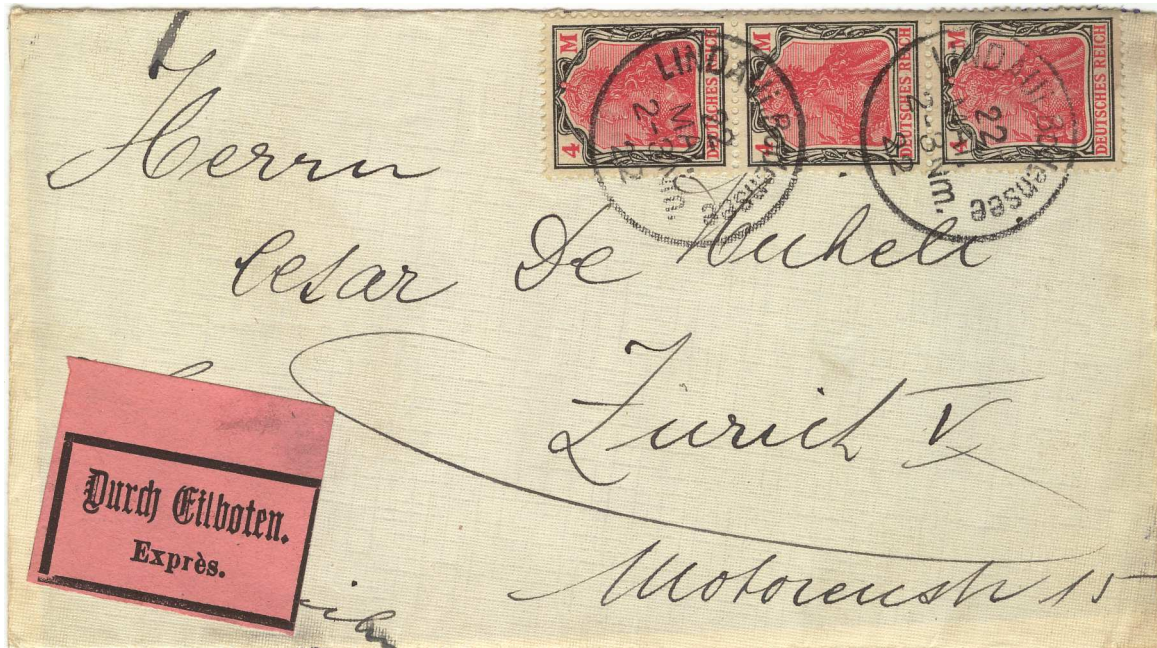 4 M DEUTSCHES REICH
4 M DEUTSCHES REICH
4 M DEUTSCHES REICH
LINDAU i. Bodensee
22
MAI
2-3 Nm.
22
LINDAU i. Bodensee
22
MAI
2-3 Nm.
22
Herrn
Cesar De
Zürich V
Motorenstr 15
Durch Eilboten.
Exprès.